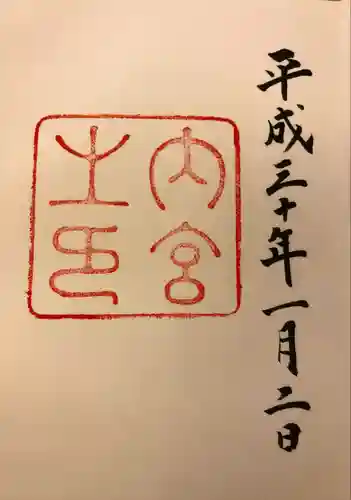 平成三十年一月二日
内宮
之印